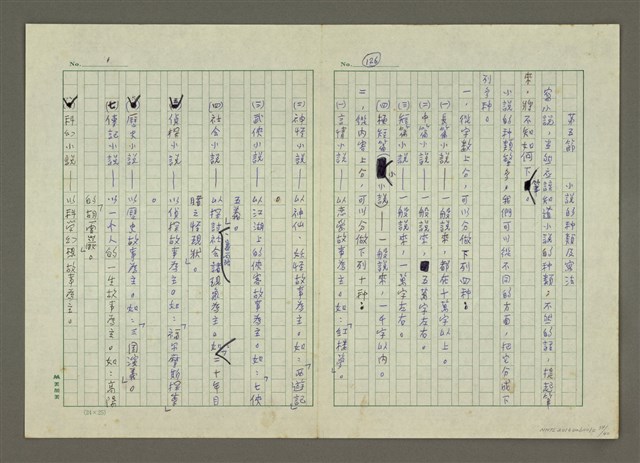 No. 126
第五節　小說的種類及寫法
寫小說，當然應該知道小說的種類，不然的話，提起筆
來，將不知如何下筆。
小說的種類繁多，我們可以從不同的方面，把它分成下
列多種。
一、從字數上分，可以分做下列四種：
(一)長篇小說——一般說來，都在十萬字以上。
(二)中篇小說——一般說來，五萬字左右。
(三)短篇小說——一般說來，一萬字左右。
(四)極短篇小說——一般說來，一千字以內。
二、從內容上分，可以分做下列十種：
(一)言情小說——以戀愛故事為主。如：「紅樓夢」。
No. 1
(二)神怪小說——以神仙、妖怪故事為主。如：「西遊記」
。
(三)武俠小說——以江湖上的俠客故事為主。如：「七俠
五義」。
(四)社會小說——以探討社會諸現象為主。如「二十年目
睹之怪現狀」。
偵探小說——以偵探故事為主。如：「福爾摩斯探案」
。
歷史小說——以歷史故事為主。如：「三國演義」。
(七)傳記小說——以一個人的一生故事為主。如：「高陽
的胡雪巖」。
科幻小說——以科學幻想故事為主。
(24×25)